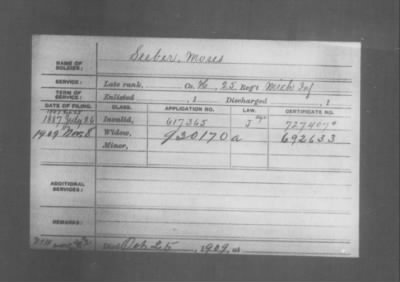 NAME OF SOLDIER: Seeber, Moses
SERVICE: Late rank, Co. K, 25 Reg't Mich Inf
TERM OF SERVICE: Enlisted , 1 Discharged , 1
DATE OF FILING. CLASS. APPLICATION NO. LAW. CERTIFICATE NO.
1887 July 26 Invalid, 617365 J 727407
1909 Nov. 8 Widow, 930170 a 692633
Minor,
ADDITIONAL SERVICES:
REMARKS:
Died Oct 25, 1909, at